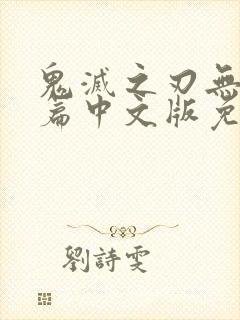 鬼滅之刃無
篇中文版免
劉詩雯